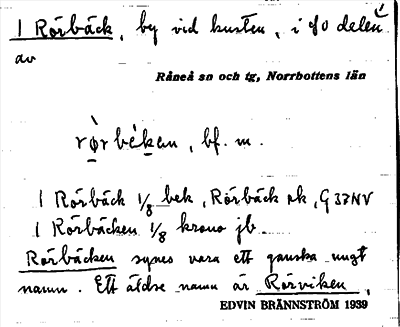 1 Rörbäck, by vid kusten, i sö delen
av
Råneå sn och tg, Norrbottens län
rö̀rbékan, bf. m.
1 Rörbäck 1/8 bek, Rörbäck rk, G33NV
1 Rörbäcken 1/8 krono jb.
Rörbäcken synes vara ett ganska ungt
namn. Ett äldre namn är Rörviken.
EDVIN BRÄNNSTRÖM 1939